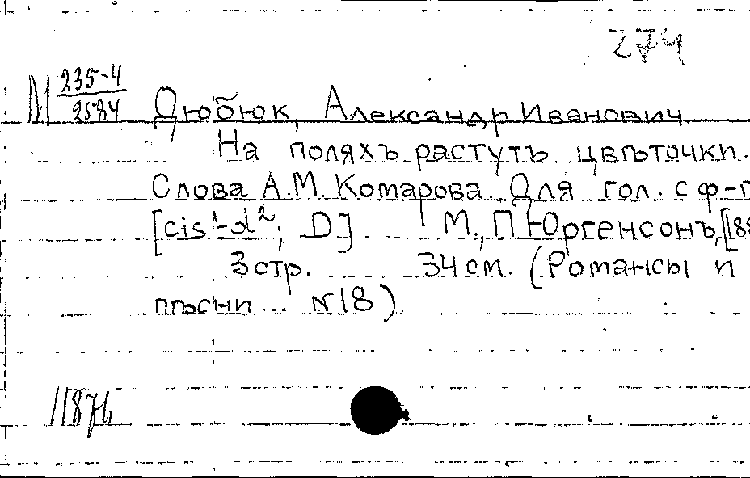 274
М 235-4
2584
Дюбюк, Александр Иванович.
На поляхъ растутъ цвѣточки.
Слова А.М. Комарова. Для гол. с ф-п
[cis¹-d²; D]. М., П. Юргенсонъ, [188
3 стр. 34 см. (Романсы и
пѣсни. N18)